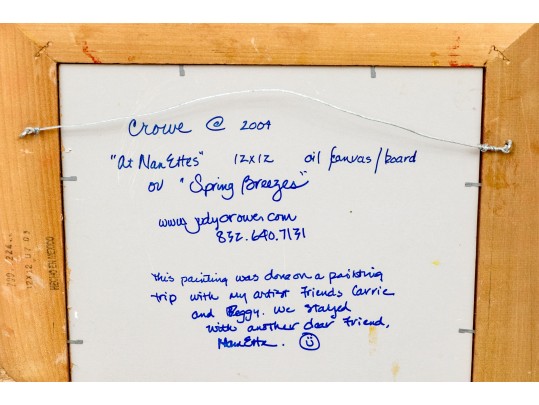 Crowe @ 2004
"At NanEttes" 12x12 oil canvas/board
or "Spring Breezes"
www.judycrowe.com
832.640.7131
This painting was done on a painting
trip with my artist friends Carrie
and Peggy. We stayed
with another dear friend,
NanEtte. ☺
HECHO EN MEXICO